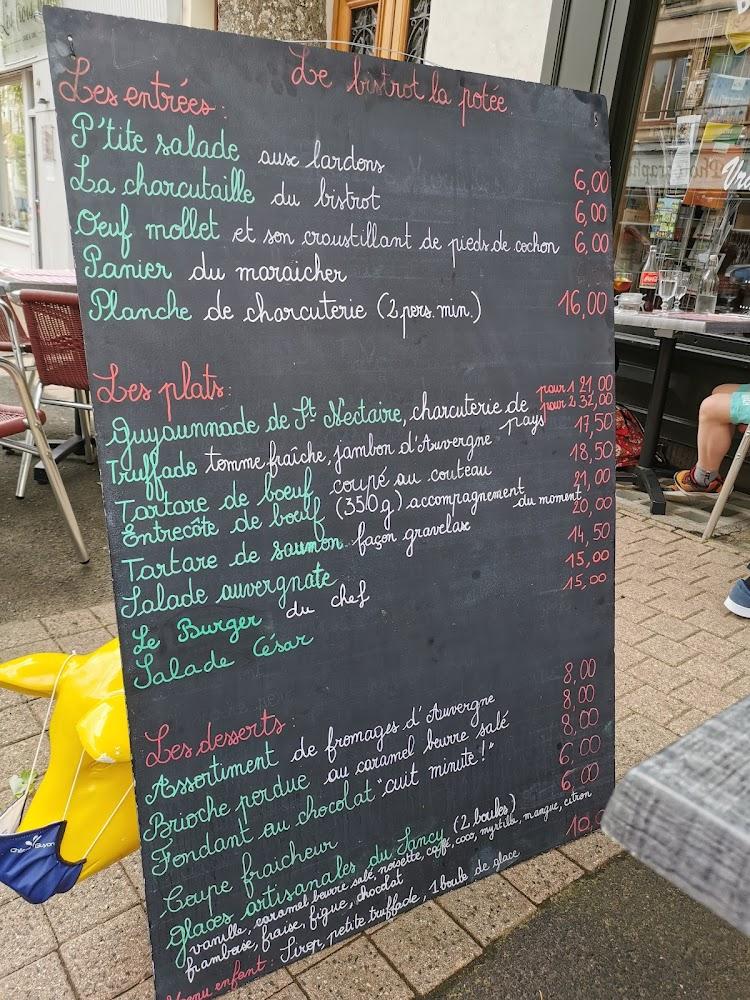 Le bistrot la potée.
Les entrées :
P'tite salade aux lardons 6,00
La charcutaille du bistrot 6,00
Oeuf mollet et son croustillant de pieds de cochon 6,00
Panier du maraicher
Planche de charcuterie (2 pers. min.) 16,00
Les plats :
Guyaunnade de St Nectaire, charcuterie de pays pour 1 21,00
pour 2 32,00
Truffade tomme fraîche, jambon d'Auvergne 17,50
Tartare de boeuf coupé au couteau 18,50
Entrecôte de boeuf (350g) accompagnement du moment 21,00
Tartare de saumon façon gravelax 20,00
Salade auvergnate 14,50
Le Burger du chef 15,00
Salade César 15,00
Les desserts :
Assortiment de fromages d'Auvergne 8,00
Brioche perdue au caramel beurre salé 8,00
Fondant au chocolat "cuit minute !" 8,00
Coupe fraicheur 6,00
Glaces artisanales du Sancy (2 boules) 6,00
vanille, caramel beurre salé, noisette, café, coco, myrtille, mangue, citron
framboise, fraise, figue, chocolat
Menu enfant : Sirop, petite truffade, 1 boule de glace 10,0
Coca-Cola